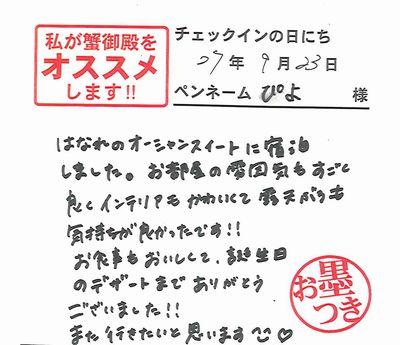 私が蟹御殿を
オススメ
します!!
チェックインの日にち
27年9月23日
ペンネーム ぴよ 様
はなれのオーシャンスイートに宿泊
しました。お部屋の雰囲気もすごく
良くインテリアもかわいくて露天ぶろも
気持ちが良かったです!!
お食事もおいしくて、誕生日
のデザートまでありがとう
ございました!!
また行きたいと思います
お墨つき